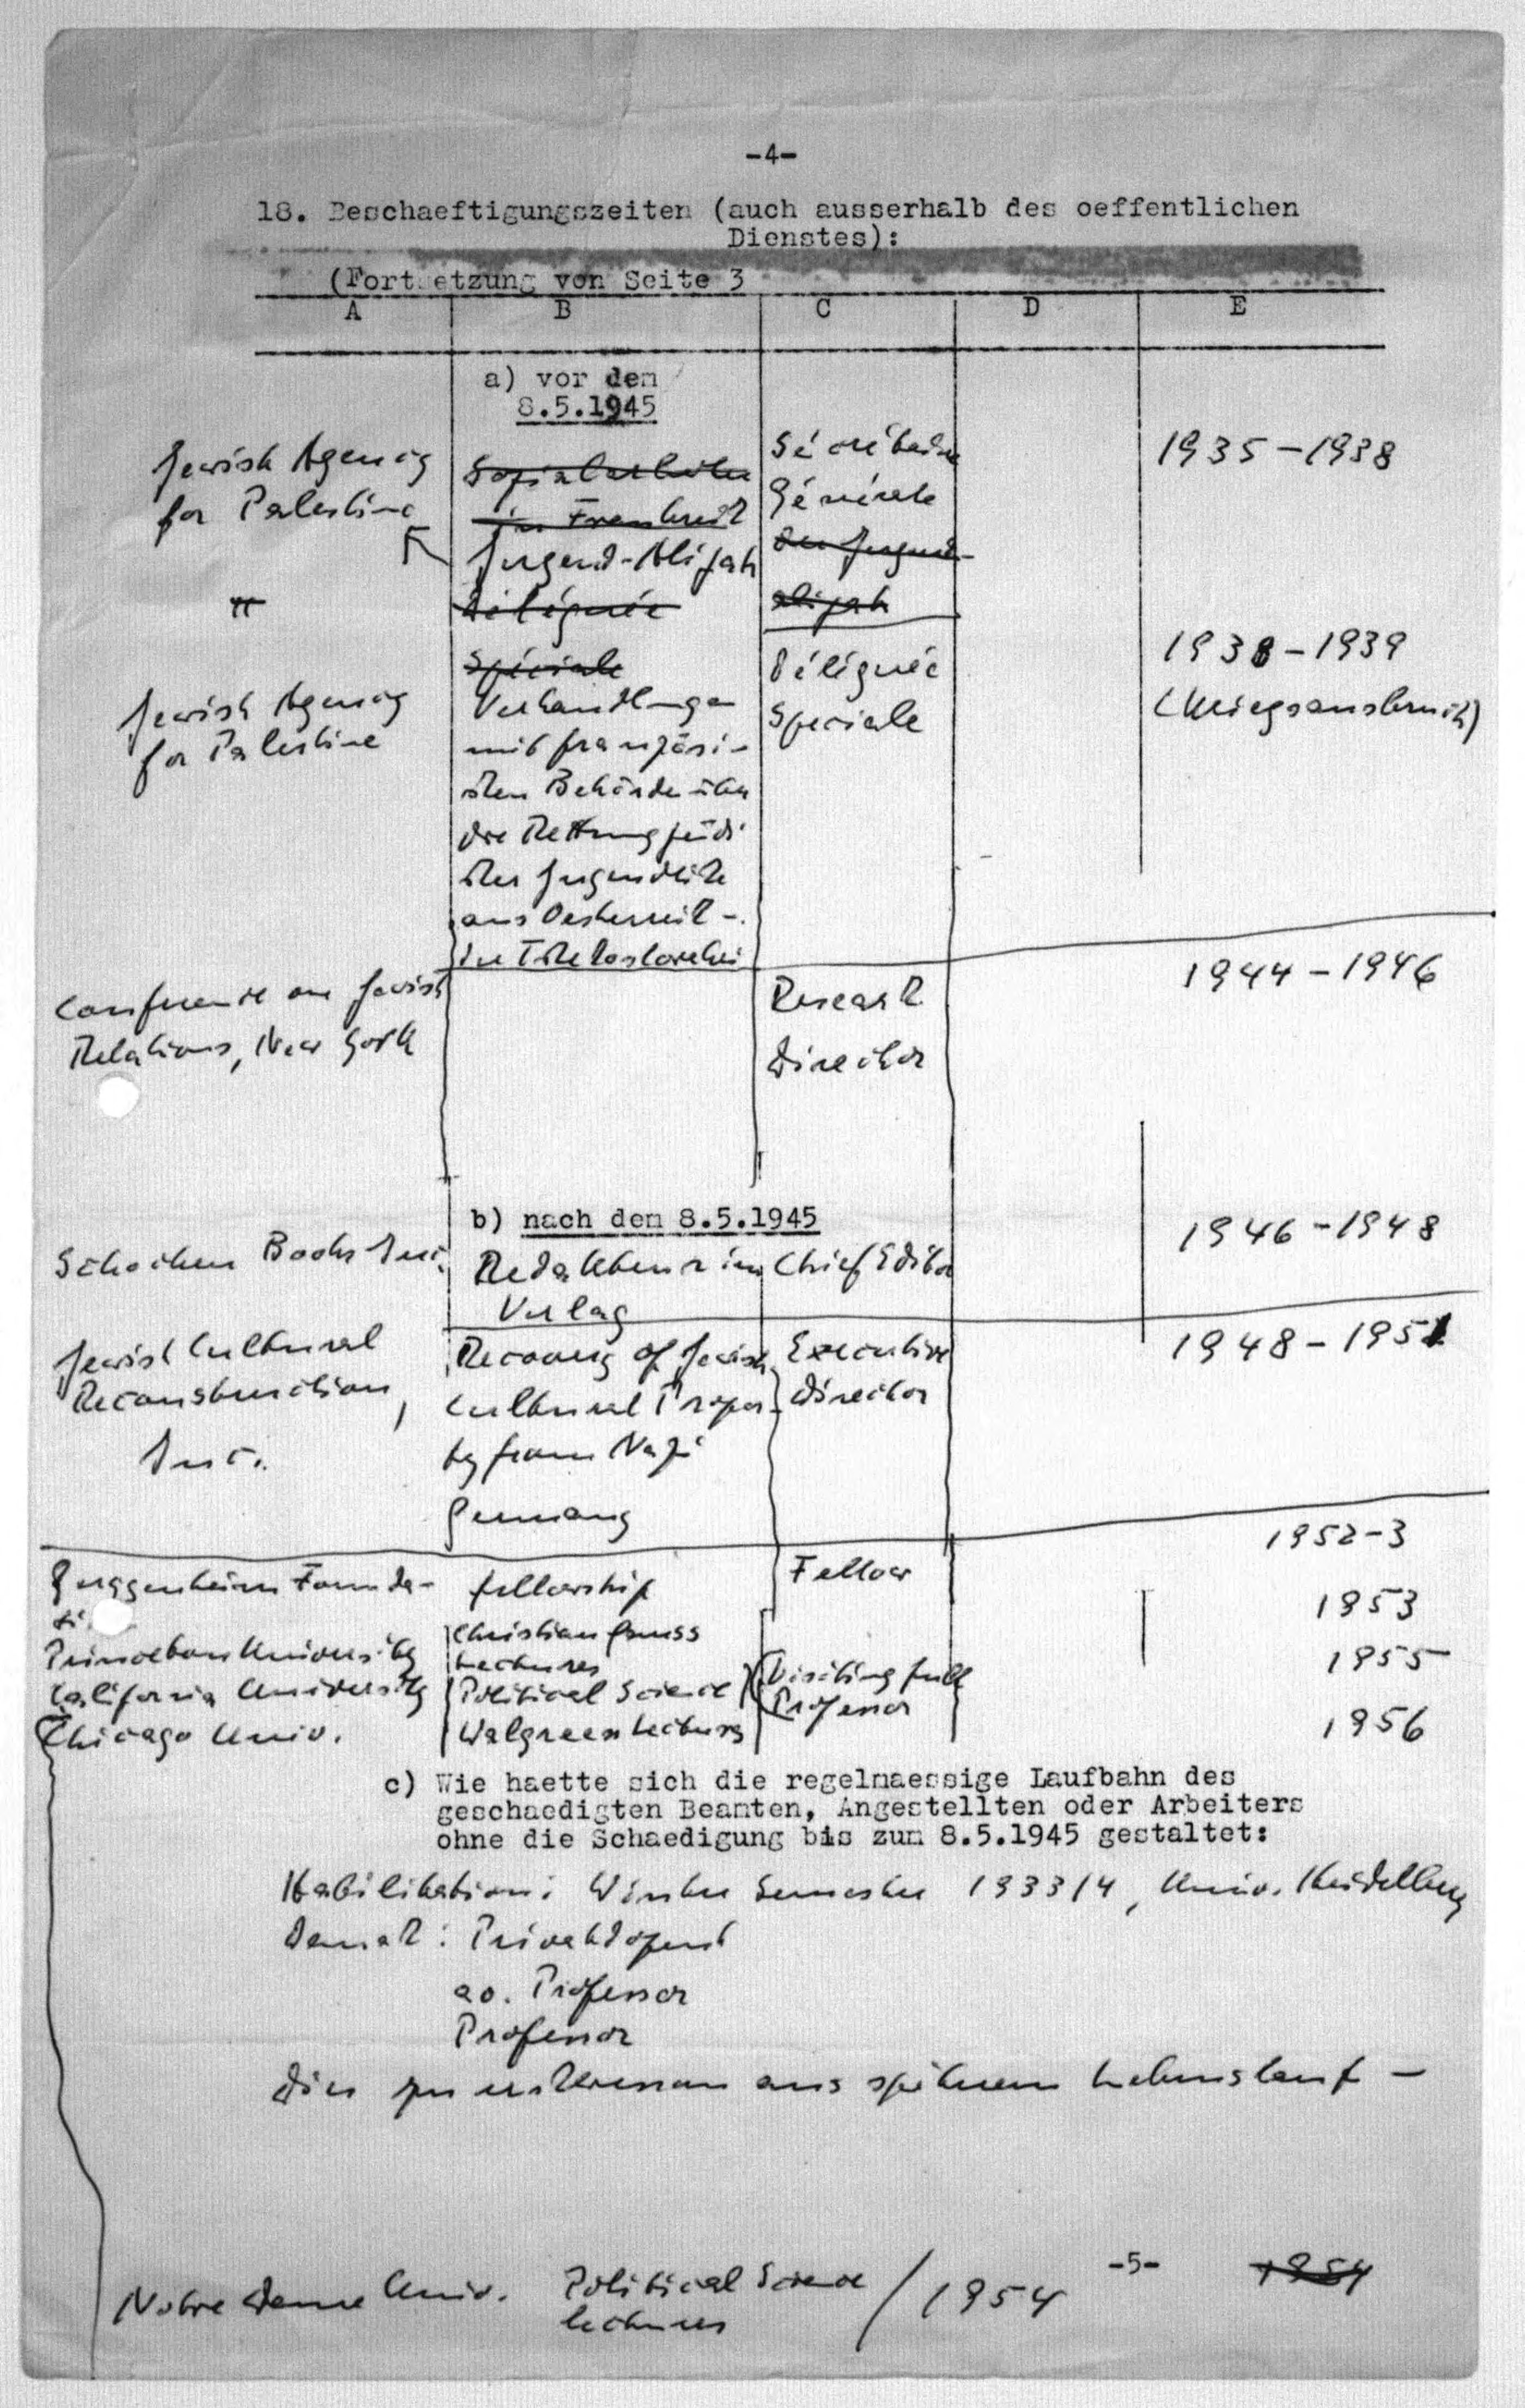 -4-
18. Beschaeftigungszeiten (auch ausserhalb des oeffentlichen
Dienstes):
(Fortsetzung von Seite 3
A B C D E
a) vor dem
8.5.1945
Jewish Agency
for Palestine
Sozialarbeiten
in Frankreich
Jugend-Alijah
Déléguée
Spéciale
Sécrétaire
Générale
der Jugend-
alijah
1935-1938
"
Jewish Agency
for Palestine
Verhandlungen
mit französi-
schen Behörden über
die Rettung jüdi-
scher Jugendliche
aus Oesterreich -
der Tschechoslowakei
Déléguée
Speciale
1938-1939
(Kriegsausbruch)
Conference on Jewish
Relations, New York
Research
Director
1944-1946
b) nach dem 8.5.1945
Schocken Books Inc.
Redakteur im
Verlag
Chief Editor
1946-1948
Jewish Cultural
Reconstruction,
Inc.
Recovery of Jewish
Cultural Proper-
ty from Nazi
Germany
Executive
Director
1948-1951
Guggenheim Founda-
fellowship
Fellow
1952-3
Princeton University
Christian Gauss
Lectures
1953
California University
Political Science
Visiting full
Professor
1955
Chicago Univ.
Walgreen Lectures
1956
c) Wie haette sich die regelmaessige Laufbahn des
geschaedigten Beamten, Angestellten oder Arbeiters
ohne die Schaedigung bis zum 8.5.1945 gestaltet:
Habilitation: Winter Semester 1933/4, Univ. Heidelberg
Danach: Privatdozent
ao. Professor
Professor
Dies zu ersehen aus späterem Lebenslauf -
-5-
1954
Notre Dame Univ. Political Science / 1954
lectures